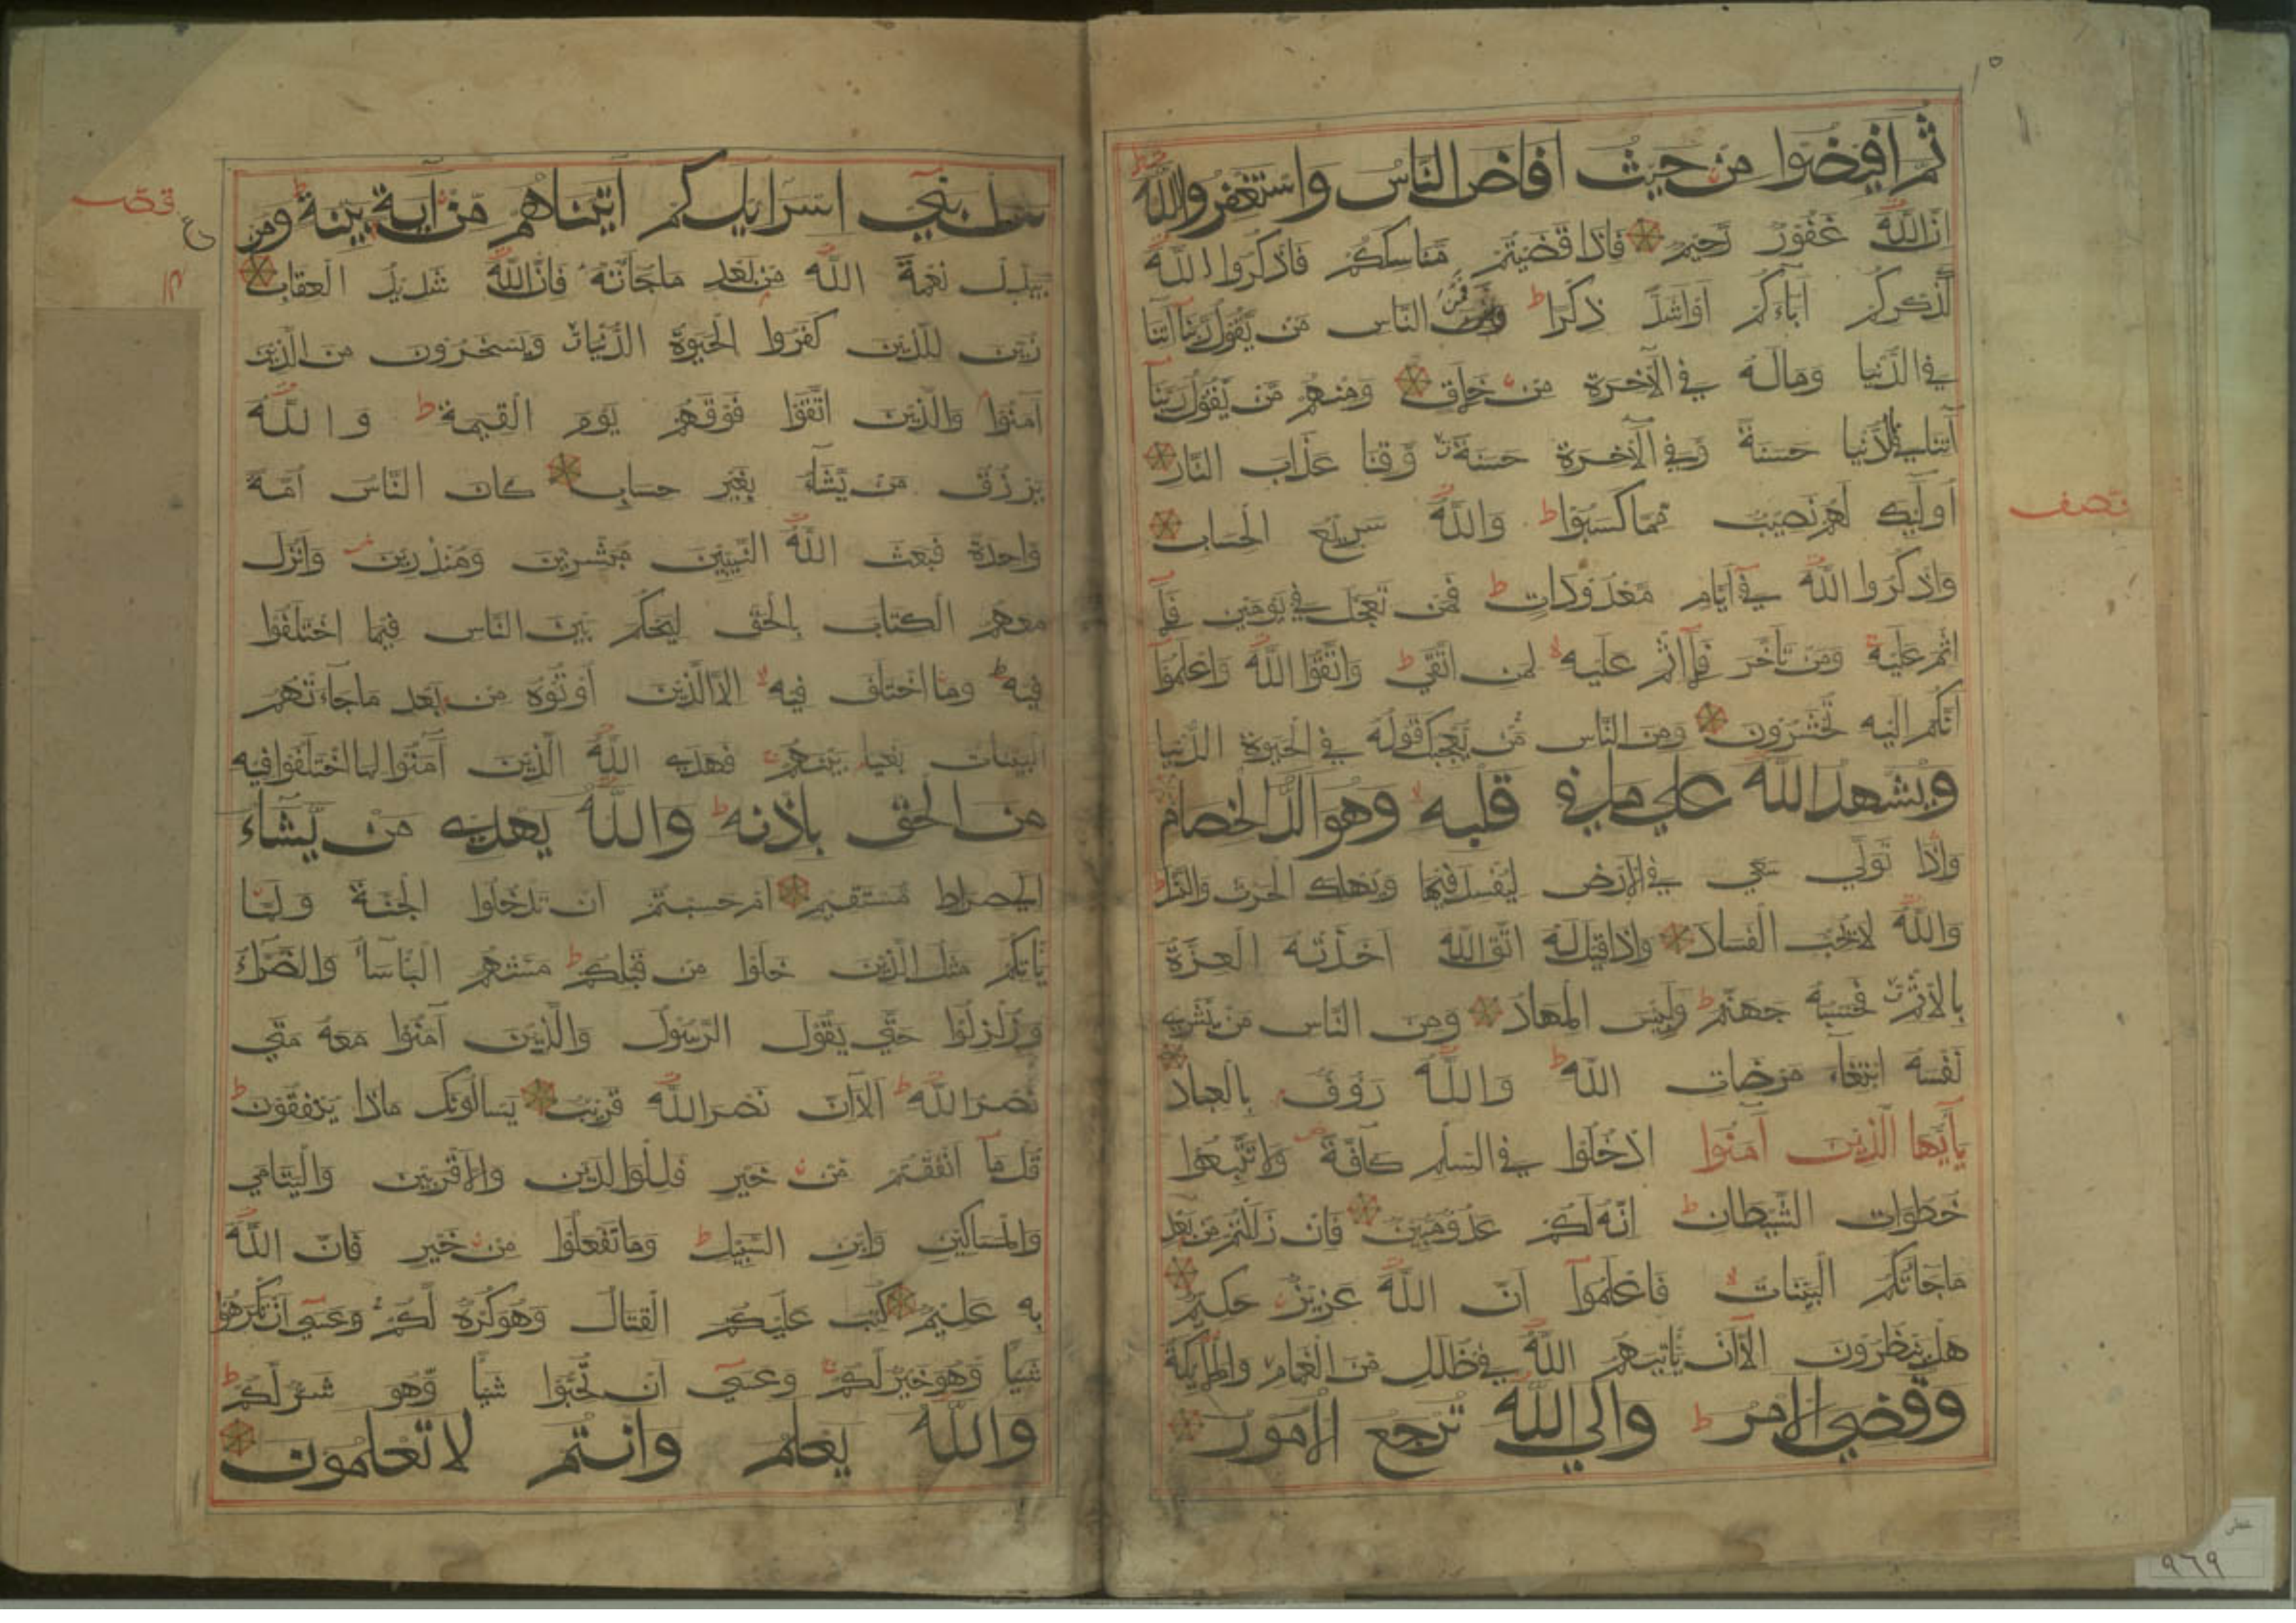 ثم افيضوا من حيث افاض الناس واستغفروا الله
ان الله غفور رحيم فاذا قضيتم مناسككم فاذكروا الله
كذكركم آباءكم او اشد ذكرا ط فمن الناس من يقول ربنا آتنا
في الدنيا وماله في الآخرة من خلاق ومنهم من يقول ربنا
آتنا في الدنيا حسنة وفي الآخرة حسنة وقنا عذاب النار
اولئك لهم نصيب مما كسبوا ط والله سريع الحساب
واذكروا الله في ايام معدودات ط فمن تعجل في يومين فلا
اثم عليه ومن تأخر فلا اثم عليه لمن اتقى ط واتقوا الله واعلموا
انكم اليه تحشرون ومن الناس من يعجبك قوله في الحيوة الدنيا
ويشهد الله على ما في قلبه وهو الد الخصام
واذا تولى سعى في الارض ليفسد فيها ويهلك الحرث والنسل ط
والله لا يحب الفساد واذا قيل له اتق الله اخذته العزة
بالاثم فحسبه جهنم ط ولبئس المهاد ومن الناس من يشري
نفسه ابتغاء مرضات الله ط والله رؤف بالعباد
يأيها الذين آمنوا ادخلوا في السلم كافة ولا تتبعوا
خطوات الشيطان ط انه لكم عدو مبين فان زللتم من بعد
ما جائتكم البينات فاعلموا ان الله عزيز حكيم
هل ينظرون الا ان يأتيهم الله في ظلل من الغمام والملائكة
وقضي الامر ط والى الله ترجع الامور
نصف
سل بني اسرايل كم اتيناهم من آية بينة ط ومن
يبدل نعمة الله من بعد ما جاءته فان الله شديد العقاب
زين للذين كفروا الحيوة الدنيا ويسخرون من الذين
آمنوا والذين اتقوا فوقهم يوم القيمة ط والله
يرزق من يشاء بغير حساب كان الناس امة
واحدة فبعث الله النبيين مبشرين ومنذرين وانزل
معهم الكتاب بالحق ليحكم بين الناس فيما اختلفوا
فيه ط وما اختلف فيه الا الذين اوتوه من بعد ما جاءتهم
البينات بغيا بينهم فهدى الله الذين آمنوا لما اختلفوا فيه
من الحق باذنه ط والله يهدي من يشاء
الى صراط مستقيم ام حسبتم ان تدخلوا الجنة ولما
يأتكم مثل الذين خلوا من قبلكم ط مستهم البأساء والضراء
وزلزلوا حتى يقول الرسول والذين آمنوا معه متى
نصر الله ط الا ان نصر الله قريب يسألونك ماذا ينفقون ط
قل ما انفقتم من خير فللوالدين والاقربين واليتامى
والمساكين وابن السبيل ط وما تفعلوا من خير فان الله
به عليم كتب عليكم القتال وهو كره لكم وعسى ان تكرهوا
شيأ وهو خير لكم وعسى ان تحبوا شيأ وهو شر لكم ط
والله يعلم وانتم لا تعلمون
ع
٩٦٩